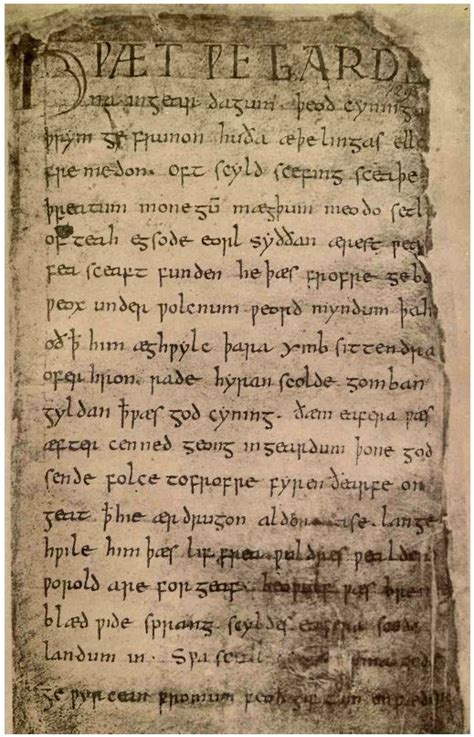 HǷÆT ǷE GARDE
na ingear dagum. þeod cyninga
þrym ge frunon huða æþelingas elle
fre medon. oft scyld scefing sceaþe
þreatum monegū mægþum meodo setl
of teah egsode eorl syððan ærest ƿea
fea sceaft funden he þæs frofre geba
ƿeox under ƿolcnum ƿeorð myndum þah
oð ꝥ him æghƿylc þara ymb sittendra
ofer hron rade hyran scolde gomban
gyldan ꝥ ƿæs god cyning. ðæm eafera ƿæs
æfter cenned geong ingeardum þone god
sende folce tofrofre fyren ðearfe on
geat ꝥ hie ær drugon aldor ase. lange
hƿile him þæs lif frea ƿuldres ƿealden
ƿorold are for geaf. beoƿulf ƿæs brem
blæd ƿide sprang scyldes eafera scede
landum in. Sƿa sceal guma god
ge ƿyrcean fromum feoh giftum on fæder